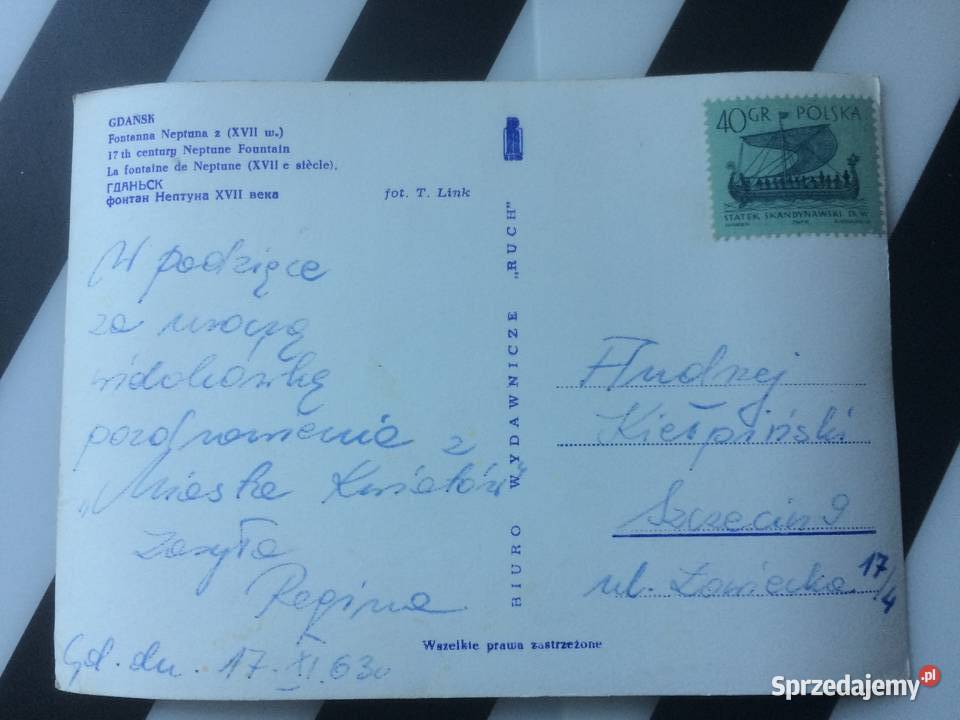 GDAŃSK
Fontanna Neptuna z (XVII w.)
17th century Neptune Fountain
La fontaine de Neptune (XVII e siècle).
ГДАНЬСК
фонтан Нептуна XVII века
fot. T. Link
W podzięce
za uroczą
widokówkę
pozdrowienia z
„Miasta Kwiatów"
Zasyła
Regina
Gd. dn. 17.XI.63r
BIURO WYDAWNICZE „RUCH"
Wszelkie prawa zastrzeżone
40 GR POLSKA
STATEK SKANDYNAWSKI IX W.
Andrzej
Kiełpiński
Szczecin 9
ul. Łowiecka 17/4
Sprzedajemy.pl